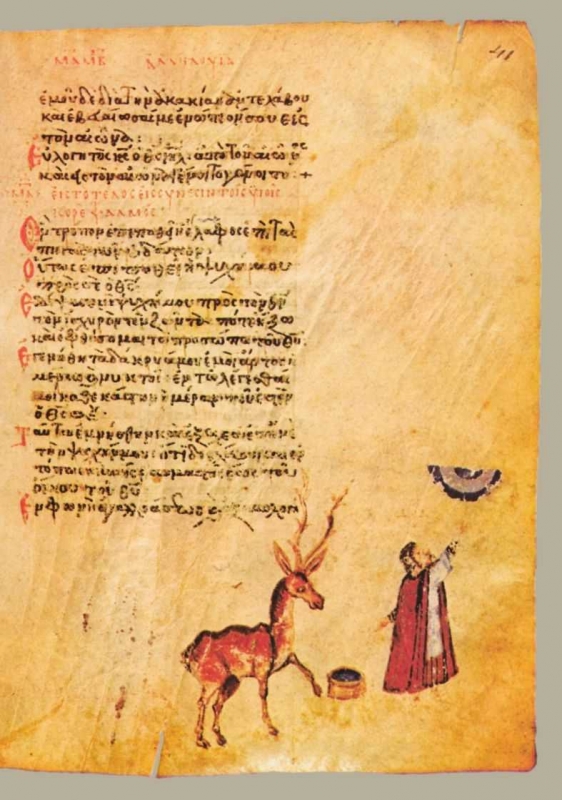 ἐμοῦ δὲ διὰ τὴν ἀκακίαν ἀντελάβου
καὶ ἐβεβαίωσάς με ἐνώπιόν σου εἰς
τὸν αἰῶνα:
Εὐλογητὸς κς ὁ θς ιηλ ἀπὸ τοῦ αἰῶνος
καὶ εἰς τὸν αἰῶνα γένοιτο γένοιτο:+
εἰς τὸ τέλος εἰς σύνεσιν τοῖς υἱοῖς
κορὲ ψαλμὸς
Ὃν τρόπον ἐπιποθεῖ ἡ ἔλαφος ἐπὶ τὰς
πηγὰς τῶν ὑδάτων
Οὕτως ἐπιποθεῖ ἡ ψυχή μου
πρὸς σὲ ὁ θς
Ἐδίψησεν ἡ ψυχή μου πρὸς τὸν θν
τὸν ἰσχυρὸν τὸν ζῶντα πότε ἥξω
καὶ ὀφθήσομαι τῷ προσώπῳ τοῦ θυ
Ἐγενήθη τὰ δάκρυά μου ἐμοὶ ἄρτος
ἡμέρας καὶ νυκτὸς ἐν τῷ λέγεσθαί
μοι καθ ἑκάστην ἡμέραν ποῦ ἐστιν
ὁ θς σου
Ταῦτα ἐμνήσθην καὶ ἐξέχεα ἐπ ἐμὲ
τὴν ψυχήν μου ὅτι διελεύσομαι ἐν
τόπῳ σκηνῆς θαυμαστῆς ἕως τοῦ
οἴκου τοῦ θυ
Ἐν φωνῇ ἀγαλλιάσεως